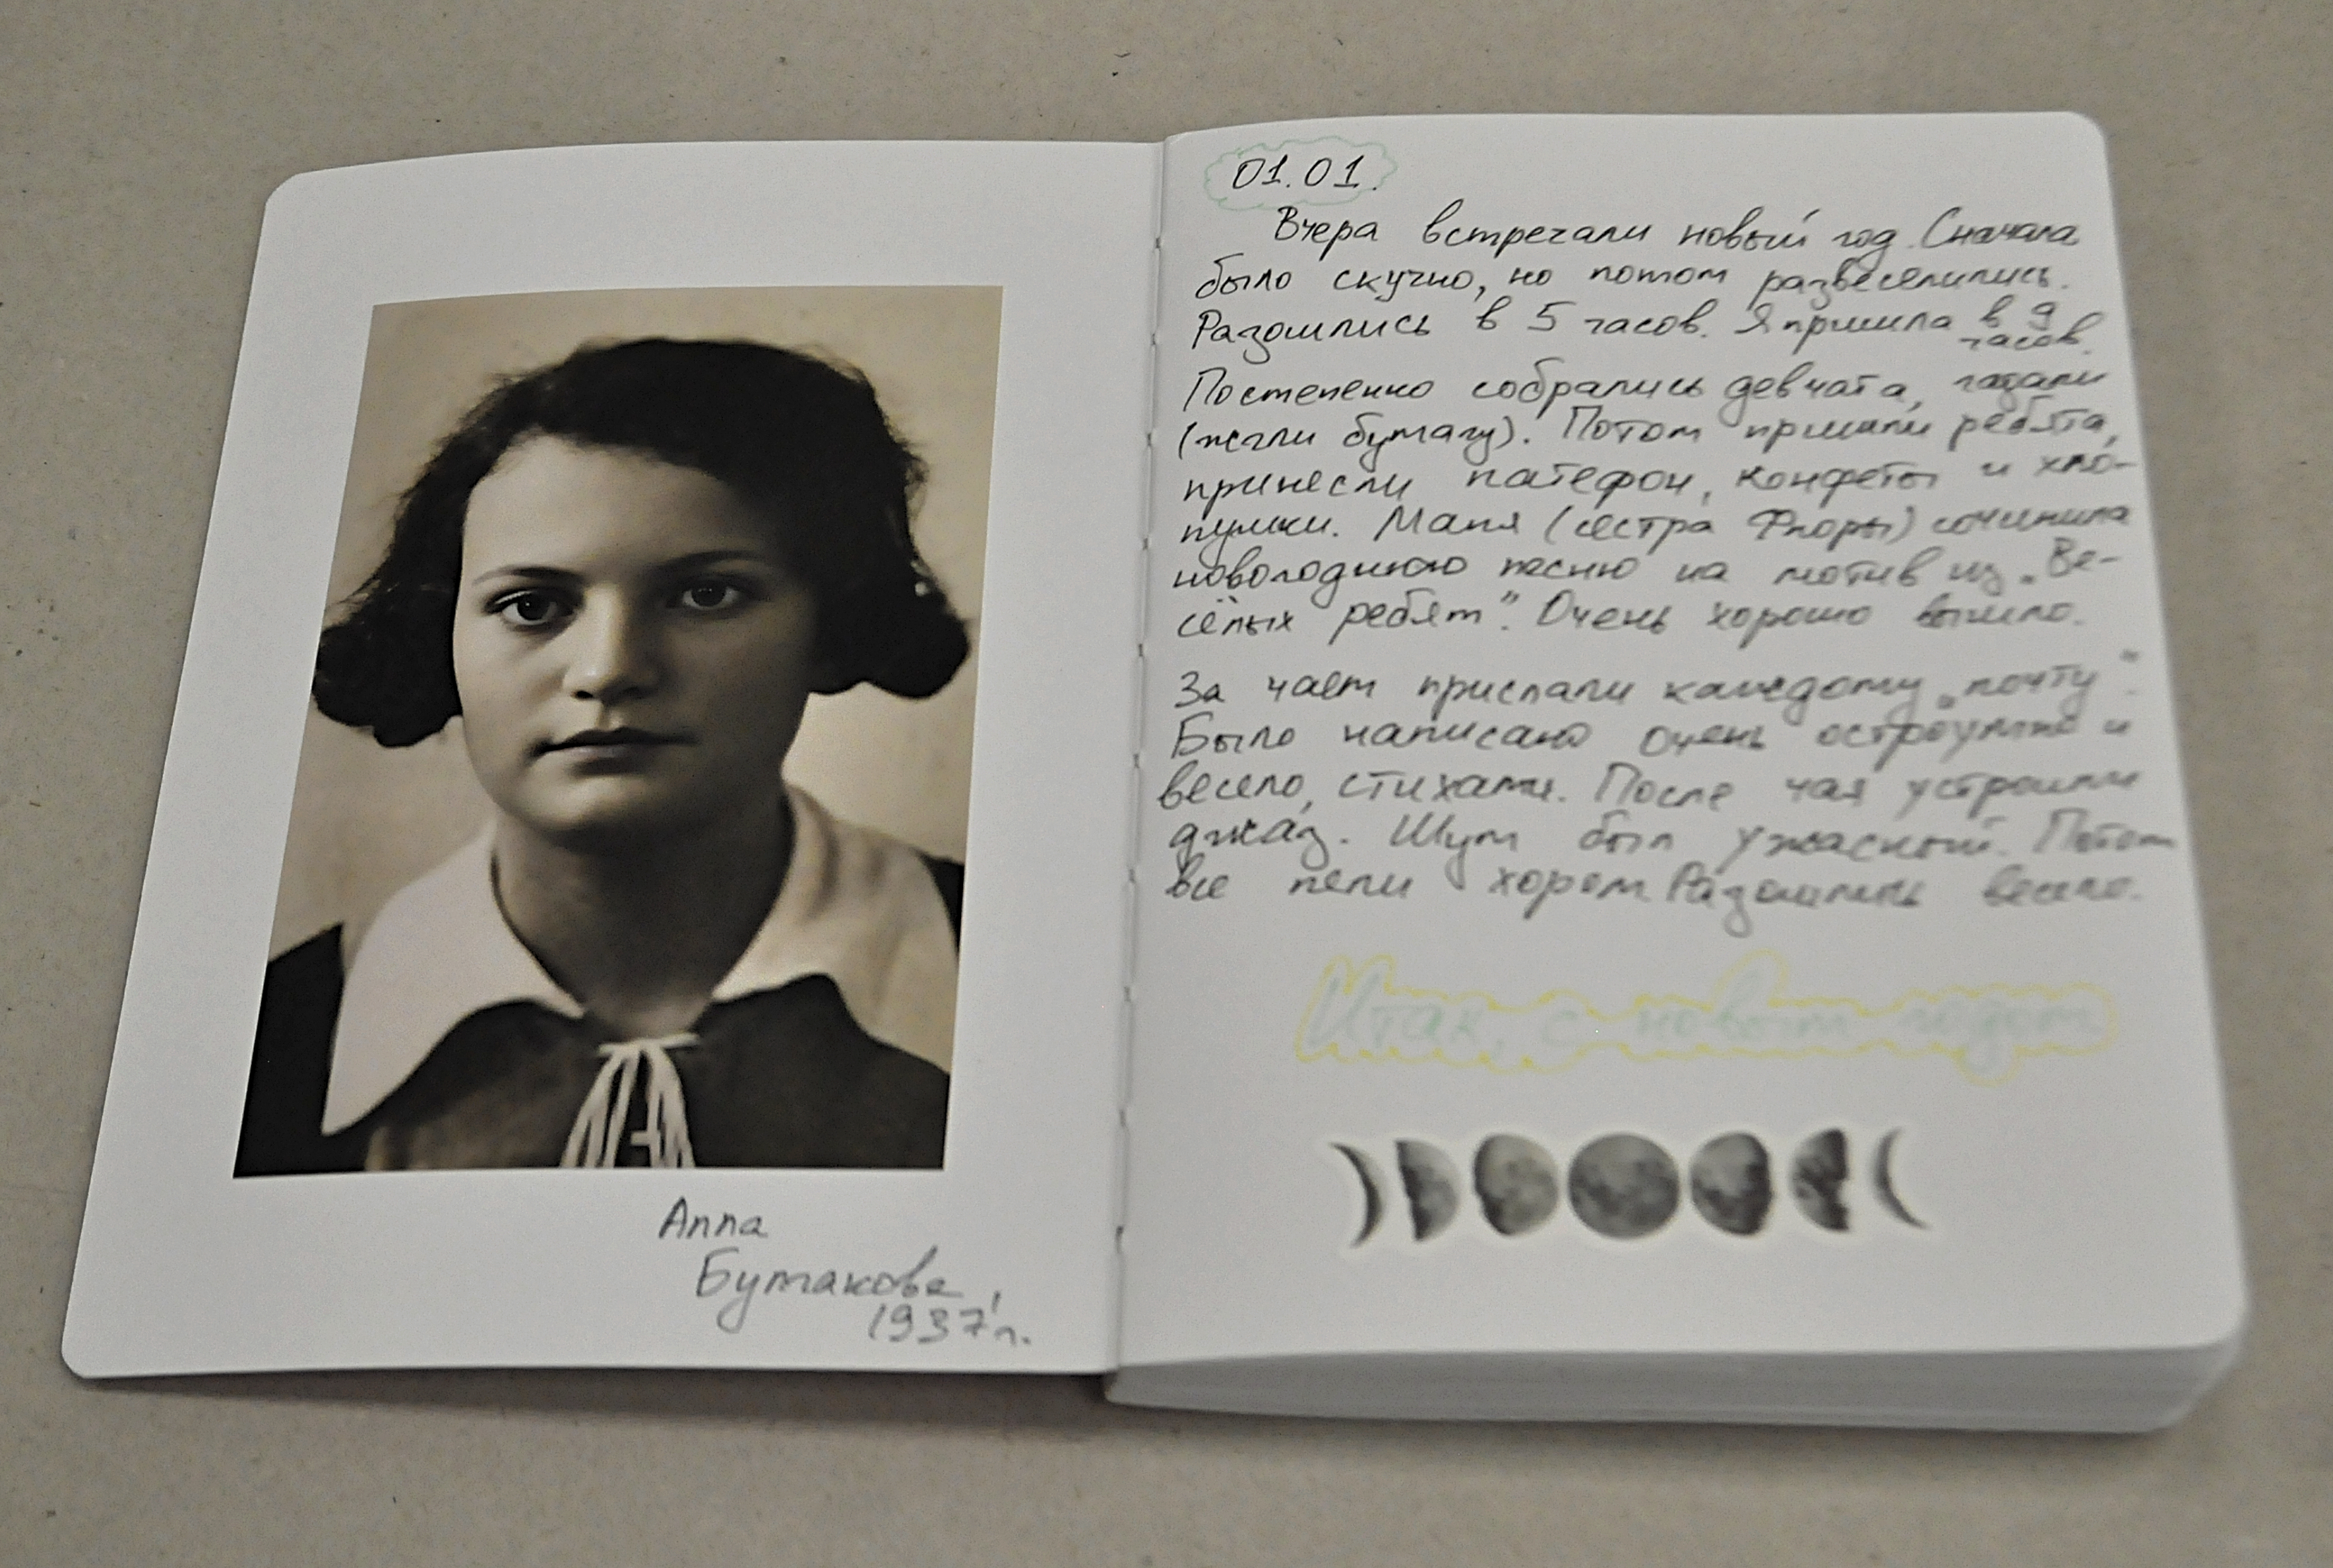 Алла
Бутакова,
1937 г.
01.01.
Вчера встречали новый год. Сначала
было скучно, но потом развеселились.
Разошлись в 5 часов. Я пришла в 9
часов.
Постепенно собрались девчата, гадали
(жгли бумагу). Потом пришли ребята,
принесли патефон, конфеты и хло-
пушки. Маля (сестра Флоры) сочинила
новогоднюю песню на мотив из „Ве-
сёлых ребят". Очень хорошо вышло.
За чаем прислали каждому „почту".
Было написано очень остроумно и
весело, стихами. После чая устроили
джаз. Шум был ужасный. Потом
все пели хором. Разошлись весело.
Итак, с новым годом